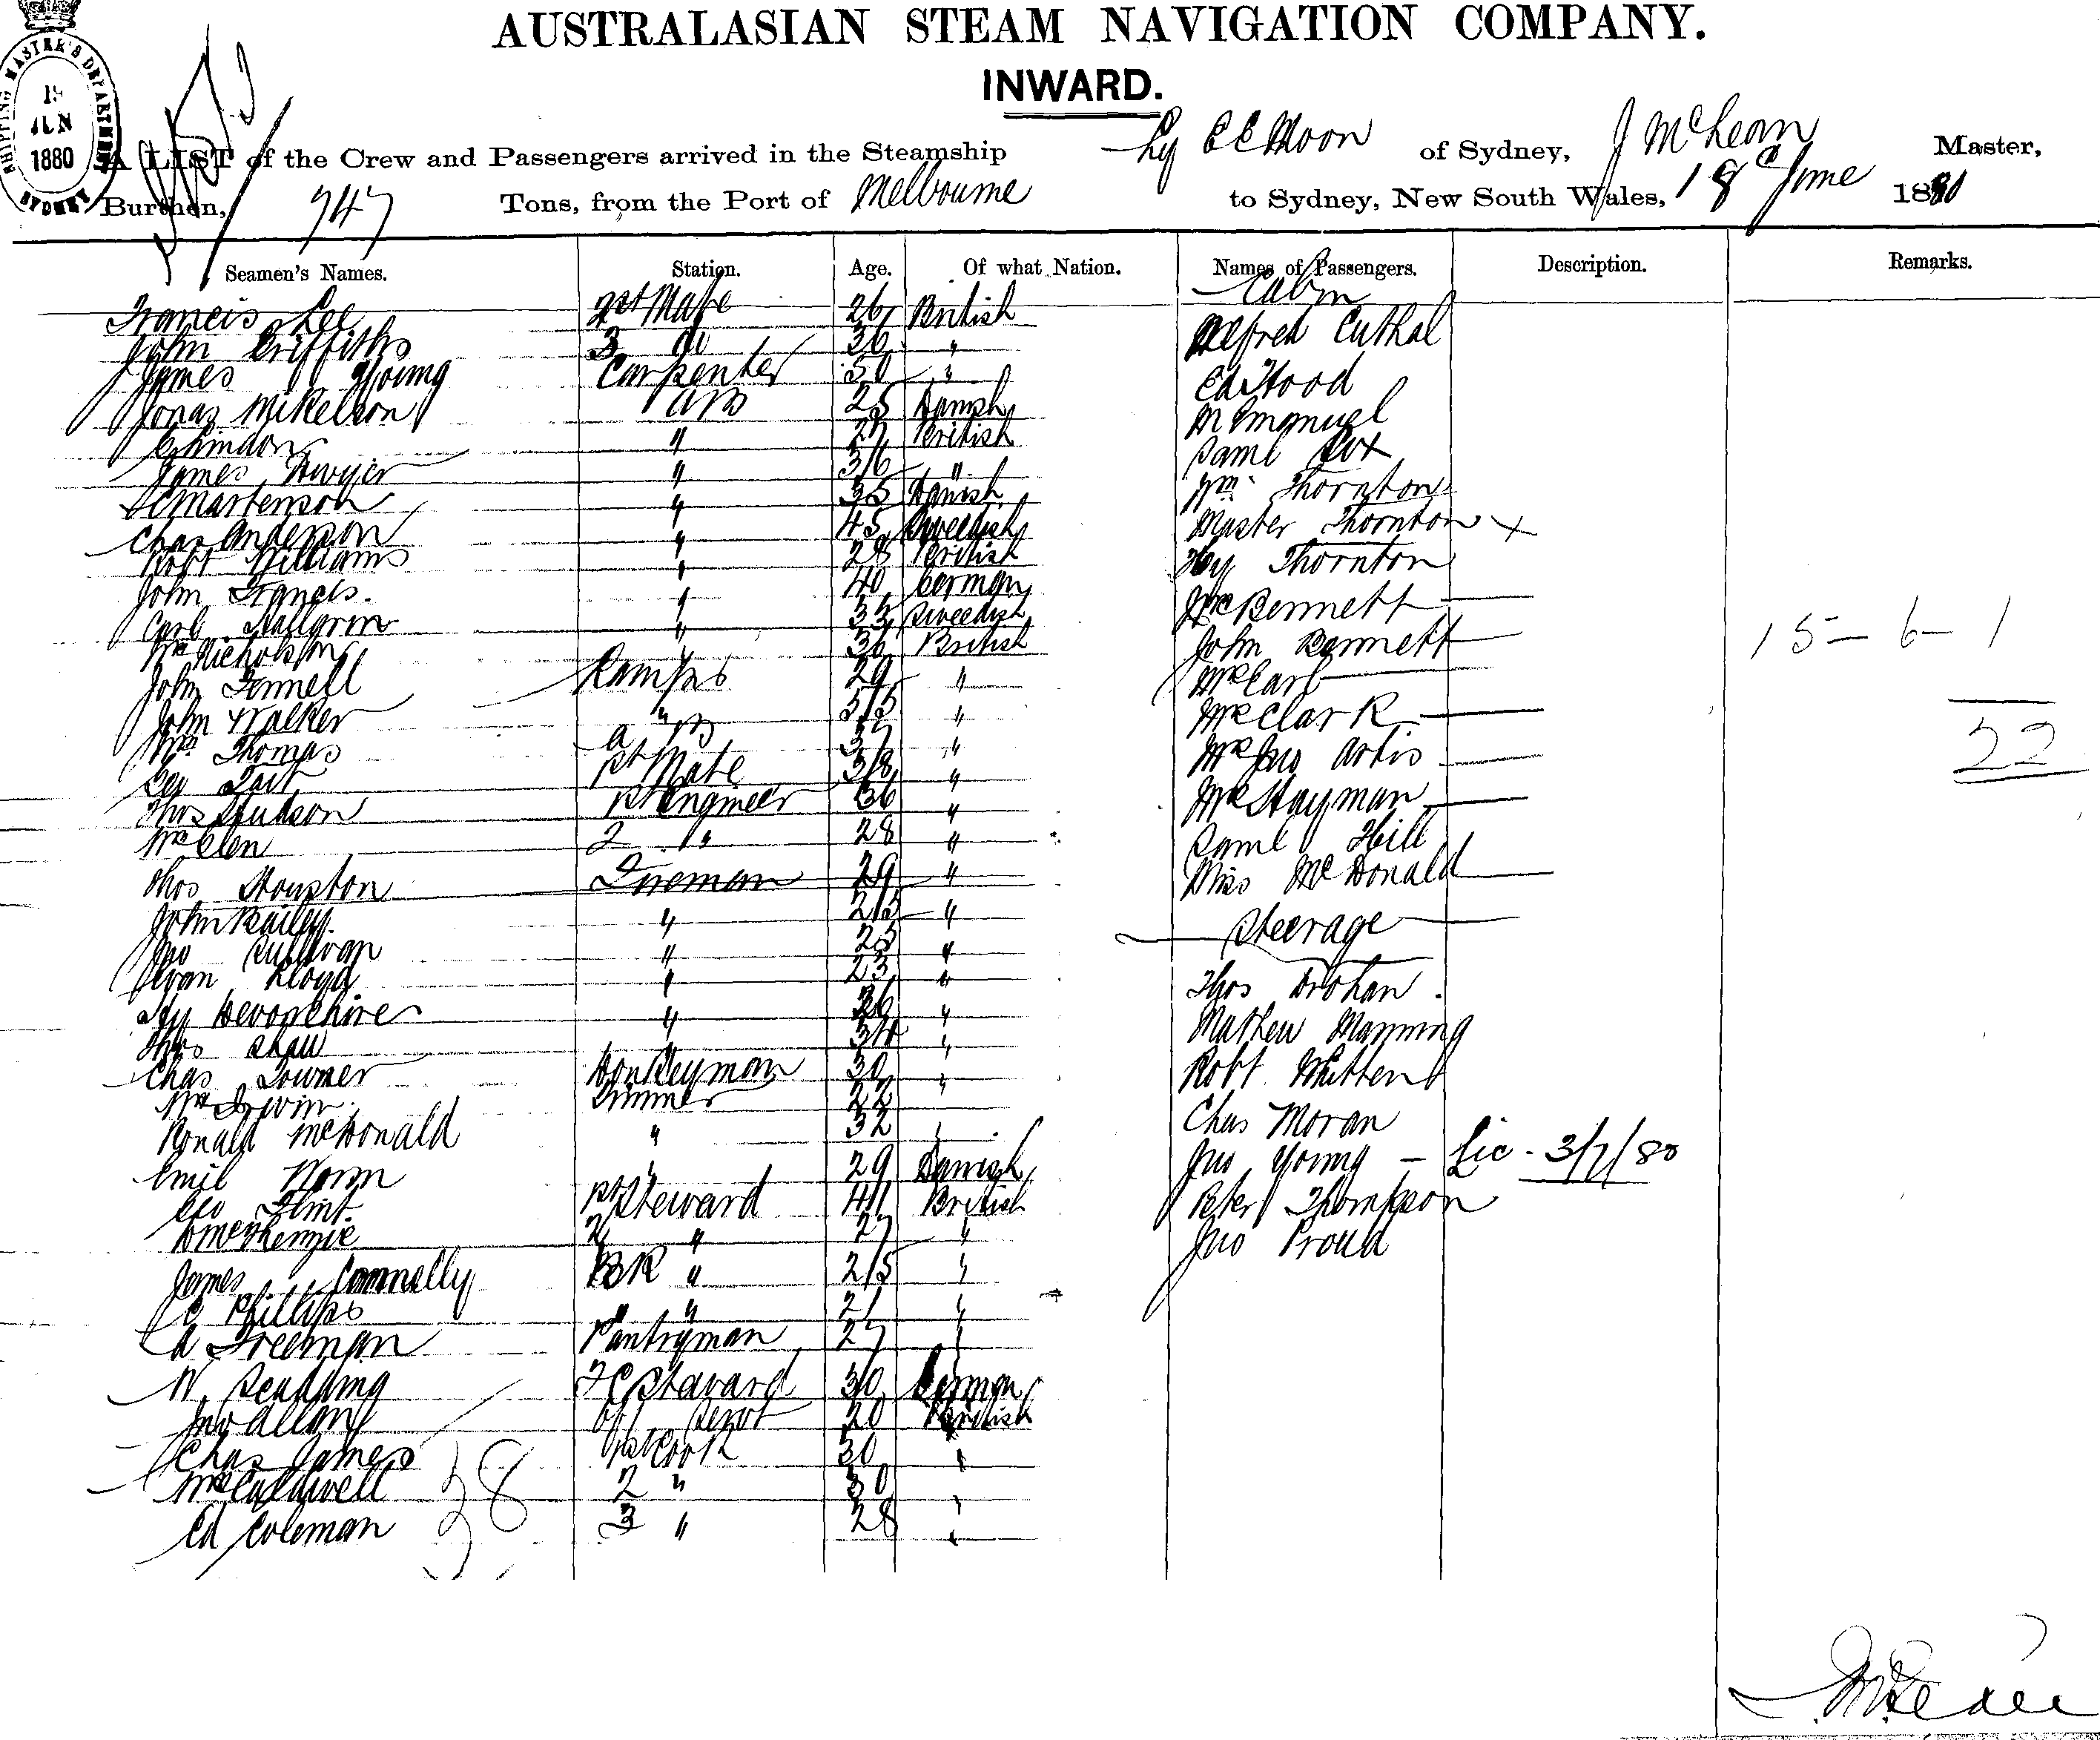 AUSTRALASIAN STEAM NAVIGATION COMPANY.
INWARD.
SHIPPING MASTER'S DEPARTMENT SYDNEY
JUN
1880
A LIST of the Crew and Passengers arrived in the Steamship Ly EE Moon of Sydney, J McLean Master,
Burthen, 747 Tons, from the Port of Melbourne to Sydney, New South Wales, 18th June 1880
Seamen's Names. Station. Age. Of what Nation. Names of Passengers. Description. Remarks.
Cabin
Francis Lee 2nd Mate 26 British Alfred Cuthal
John Griffiths 3 do 36 "
James Young Carpenter 50 " Ed Hood
Jonas Mikelson AB 25 Danish M Emanuel
" 27 British Saml Cox
James Dwyer " 36 " Wm Thornton
Martenson " 35 Danish
Chas Anderson " 45 Sweedish Master Thornton x
Robt Williams " 28 British Hy Thornton
John Francis. " 40 German Mr Bennett
Carl " 33 Sweedish John Bennett
Wm Nicholson " 36 British
John Fennell Lamps 29 " Mr Carl
John Walker " 55 " Mr Clark
Wm Thomas AB 37 " Mr Jno Artis
Geo Tait 1st Mate 38 "
Thos Hudson 1st Engineer 36 " Mr Hayman
Wm Glen 2 " 28 " Saml Hill
Thos Houston Fireman 29 " Miss McDonald
John Bailey. " 25 "
Steerage
Jno Sullivan " 25 "
Evan Lloyd " 23 " Thos Drohan.
Hy Devonshire " 26 "
Thos Shaw " 34 " Mathew Manning
Chas Donkeyman 30 " Robt Whitten
Wm Irwin Trimmer 22
Ronald McDonald " 32 " Chas Moran
Emil " 29 Danish Jno Young - Lic - 3/7/80
Geo Flint. 1st Steward 41 British Peter Thompson
D McKenzie 2 " 27 " Jno Proud
James Connelly BR " 25 "
C Phillips " " 21 "
A Freeman Pantryman 27 "
W. FC Steward 30 German
Jno Allan 20 British
Chas James 1st Cook 30 "
Wm Caldwell 2 " 30 "
Ed Coleman 3 " 28 "
38
15 - 6 - 1
22
J McLean